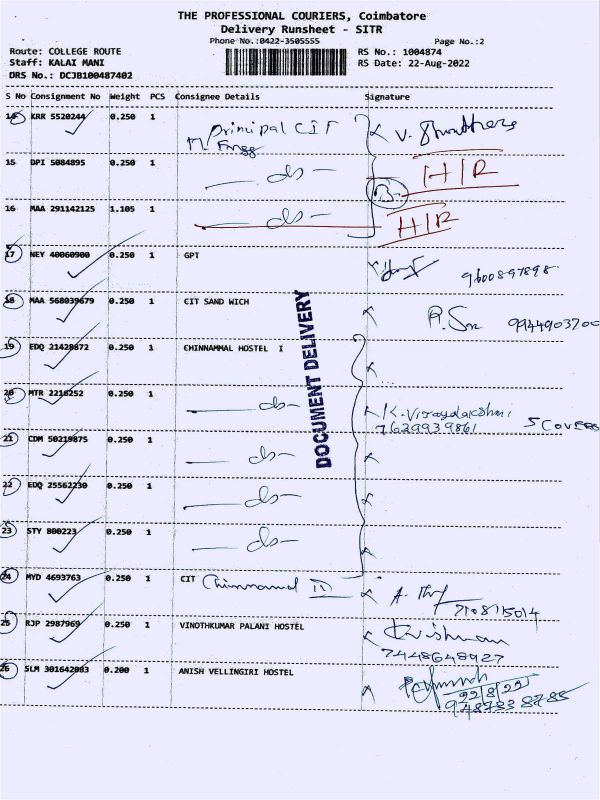 THE PROFESSIONAL COURIERS, Coimbatore
Delivery Runsheet - SITR
Phone No.:0422-3505555 Page No.:2
Route: COLLEGE ROUTE RS No.: 1004874
Staff: KALAI MANI RS Date: 22-Aug-2022
DRS No.: DCJB100487402
S No Consignment No Weight PCS Consignee Details Signature
14 KRR 5520244 0.250 1 Principal CIT
15 DPI 5084895 0.250 1 - do - H/R
16 MAA 291142125 1.105 1 - do - H/R
17 NEY 40060900 0.250 1 GPT 9600897898
18 MAA 568039679 0.250 1 CIT SAND WICH 9944903700
19 EDQ 21428872 0.250 1 CHINNAMMAL HOSTEL I
DOCUMENT DELIVERY
20 MTR 2216252 0.250 1 - do - K. Vijayalakshmi
7629939861 5 COVERS
21 CDM 50219875 0.250 1 - do -
22 EDQ 25562230 0.250 1 - do -
23 STY 800223 0.250 1 - do -
24 MYD 4693763 0.250 1 CIT Chinnamal II
7108115014
25 RJP 2987969 0.250 1 VINOTHKUMAR PALANI HOSTEL Krishnan
7448648927
26 SLM 301642083 0.200 1 ANISH VELLINGIRI HOSTEL
22/8/22